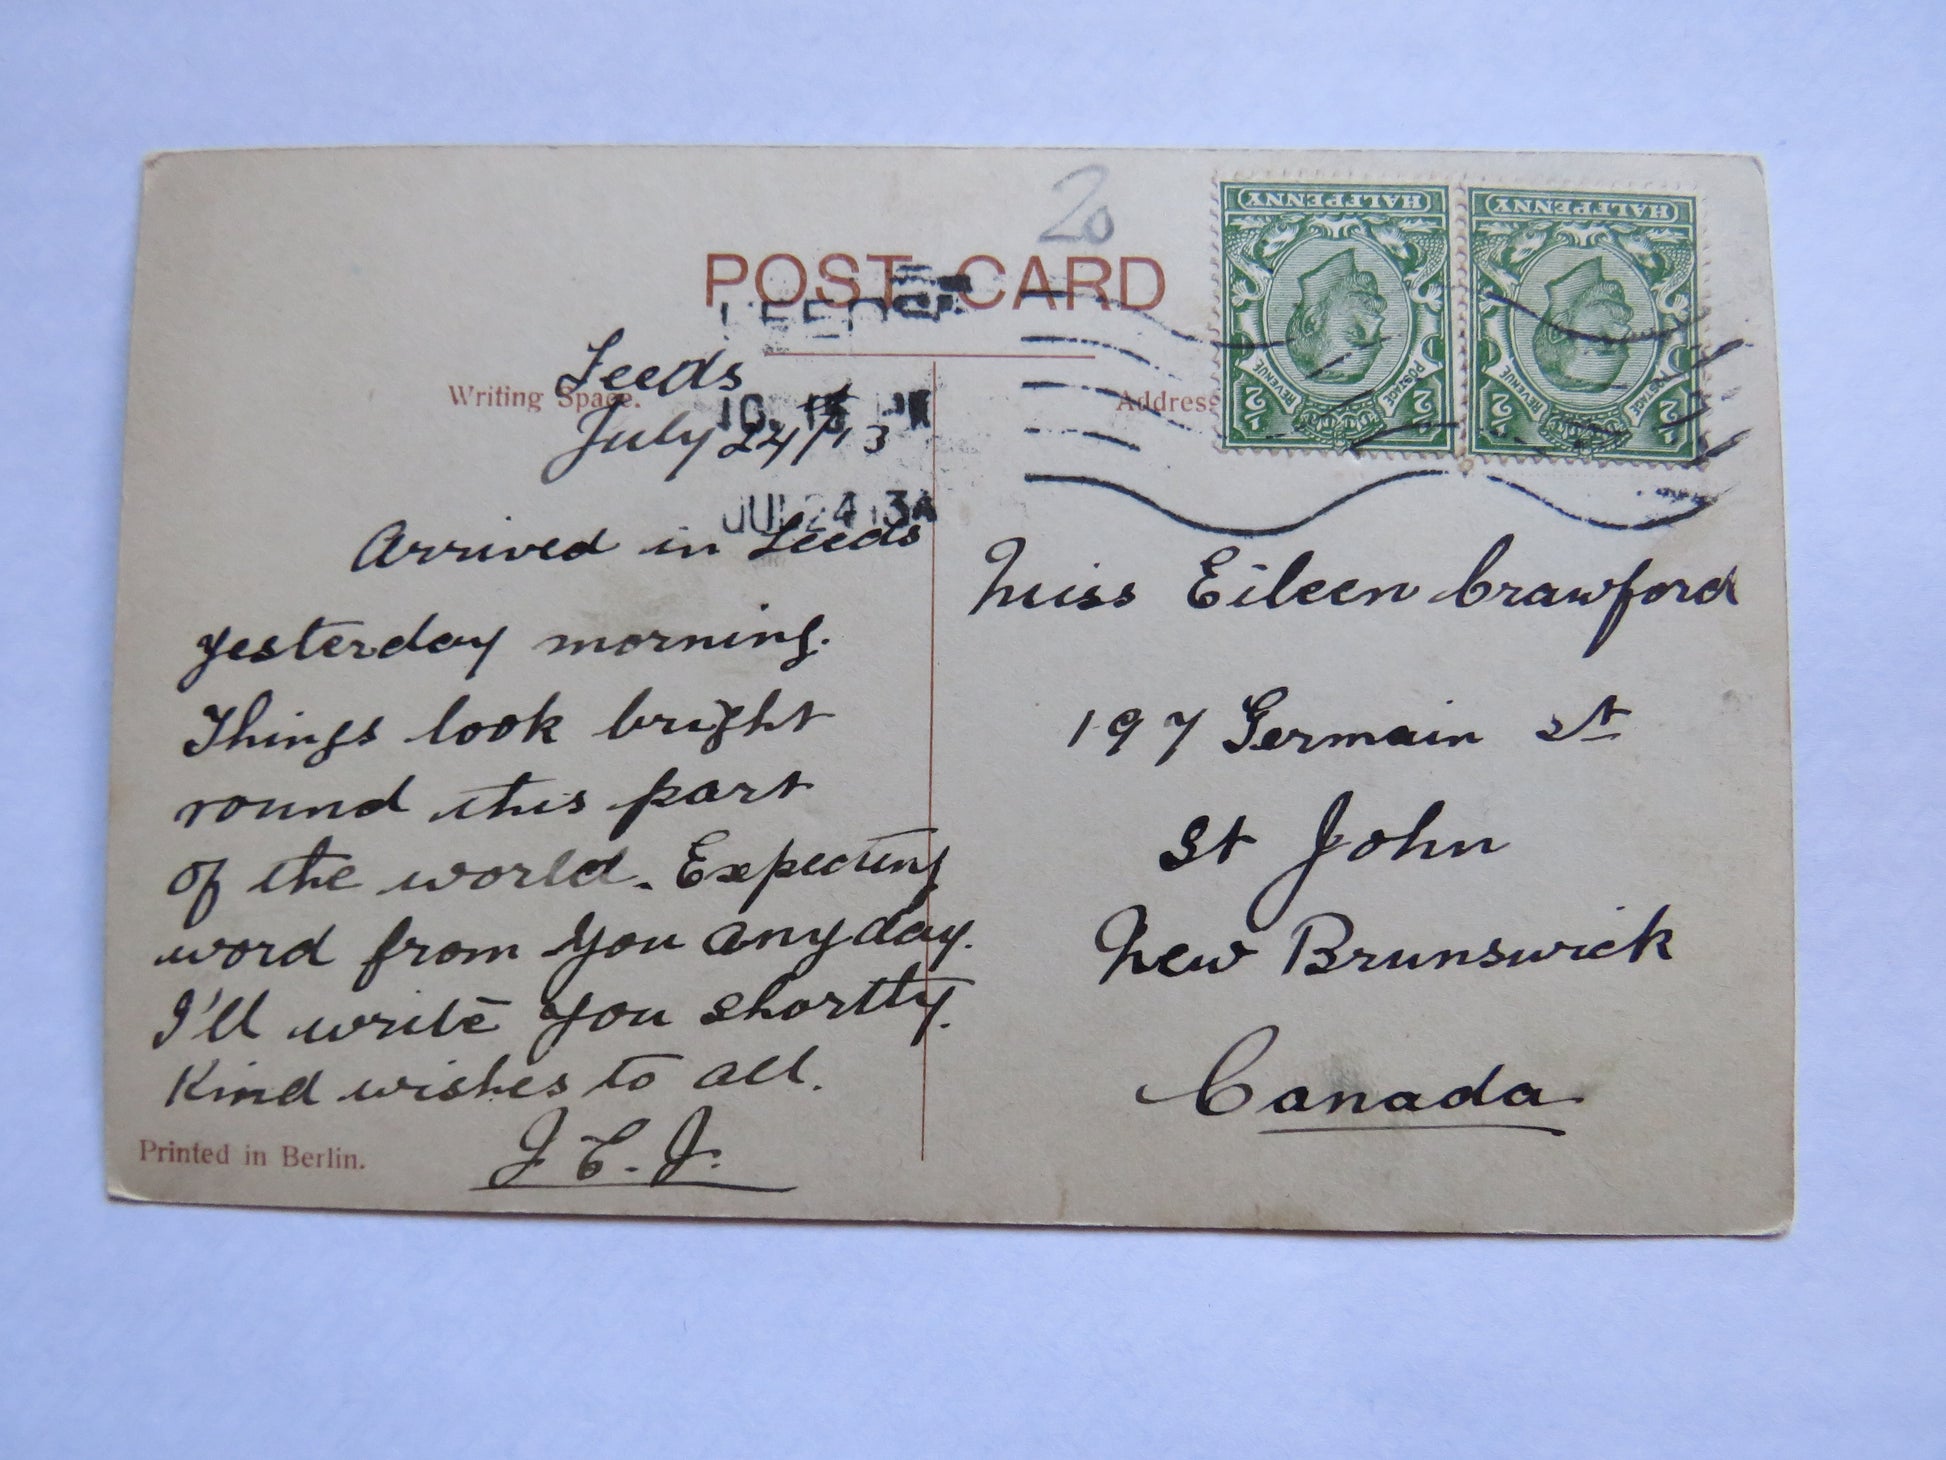 20
POST CARD
LEEDS
10. 15 PM
JUL 24 13A
Writing Space.
Address
Leeds
July 24/13
Arrived in Leeds
yesterday morning.
Things look bright
round this part
of the world. Expecting
word from you any day.
I'll write you shortly.
Kind wishes to all.
J. C. J.
Printed in Berlin.
HALFPENNY
POSTAGE
REVENUE
1/2
1/2
HALFPENNY
POSTAGE
REVENUE
1/2
1/2
Miss Eileen Crawford
197 Germain St
St John
New Brunswick
Canada